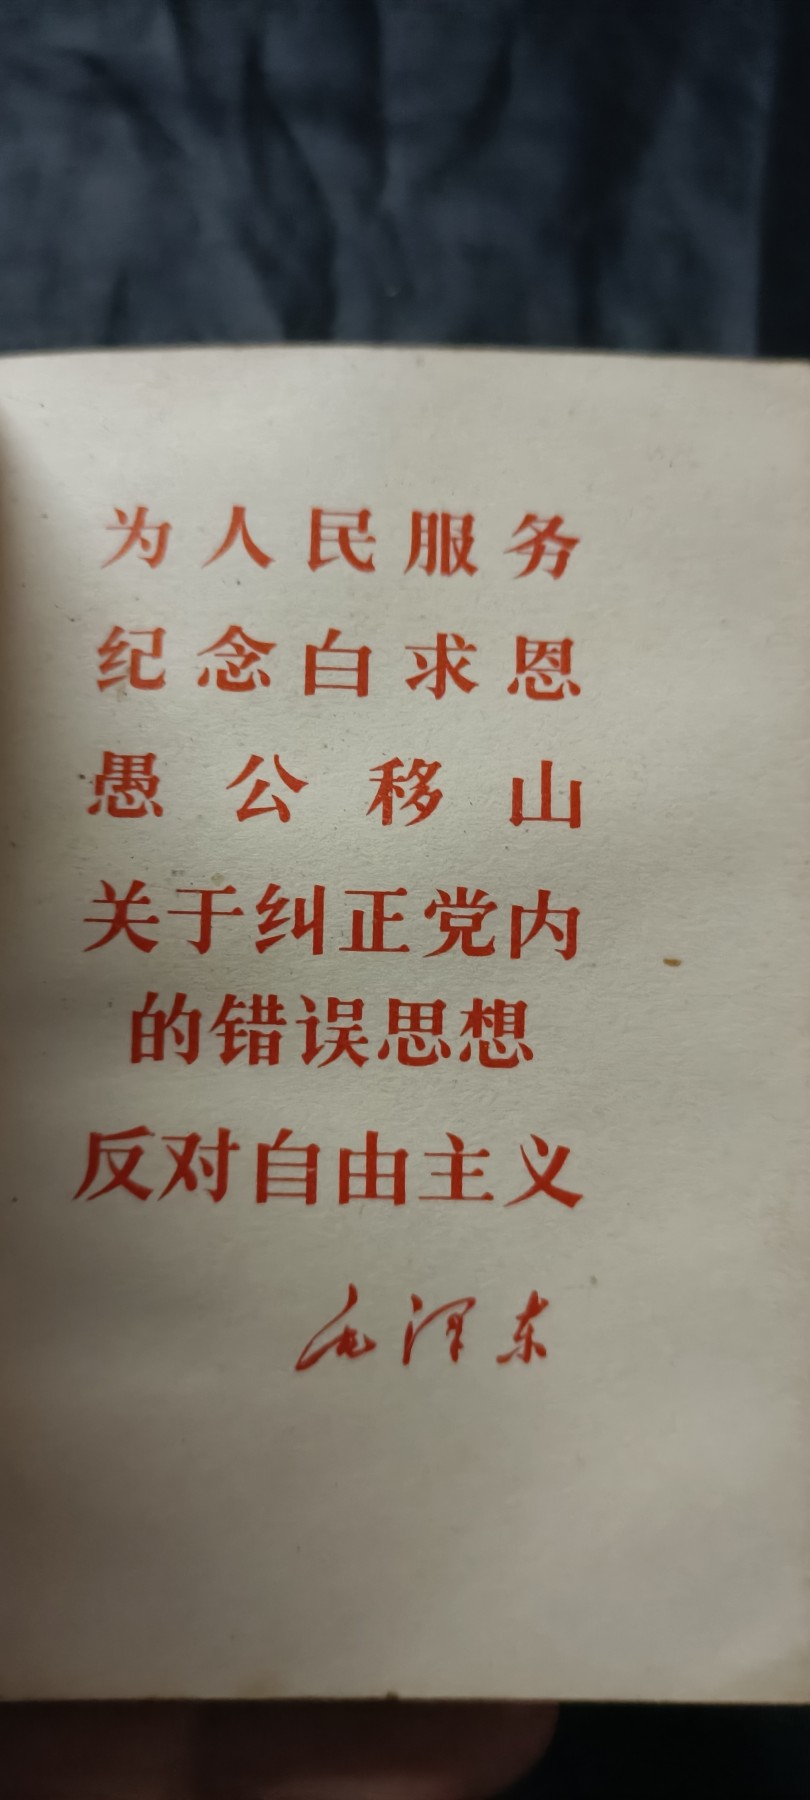 为人民服务
纪念白求恩
愚公移山
关于纠正党内
的错误思想
反对自由主义
毛泽东